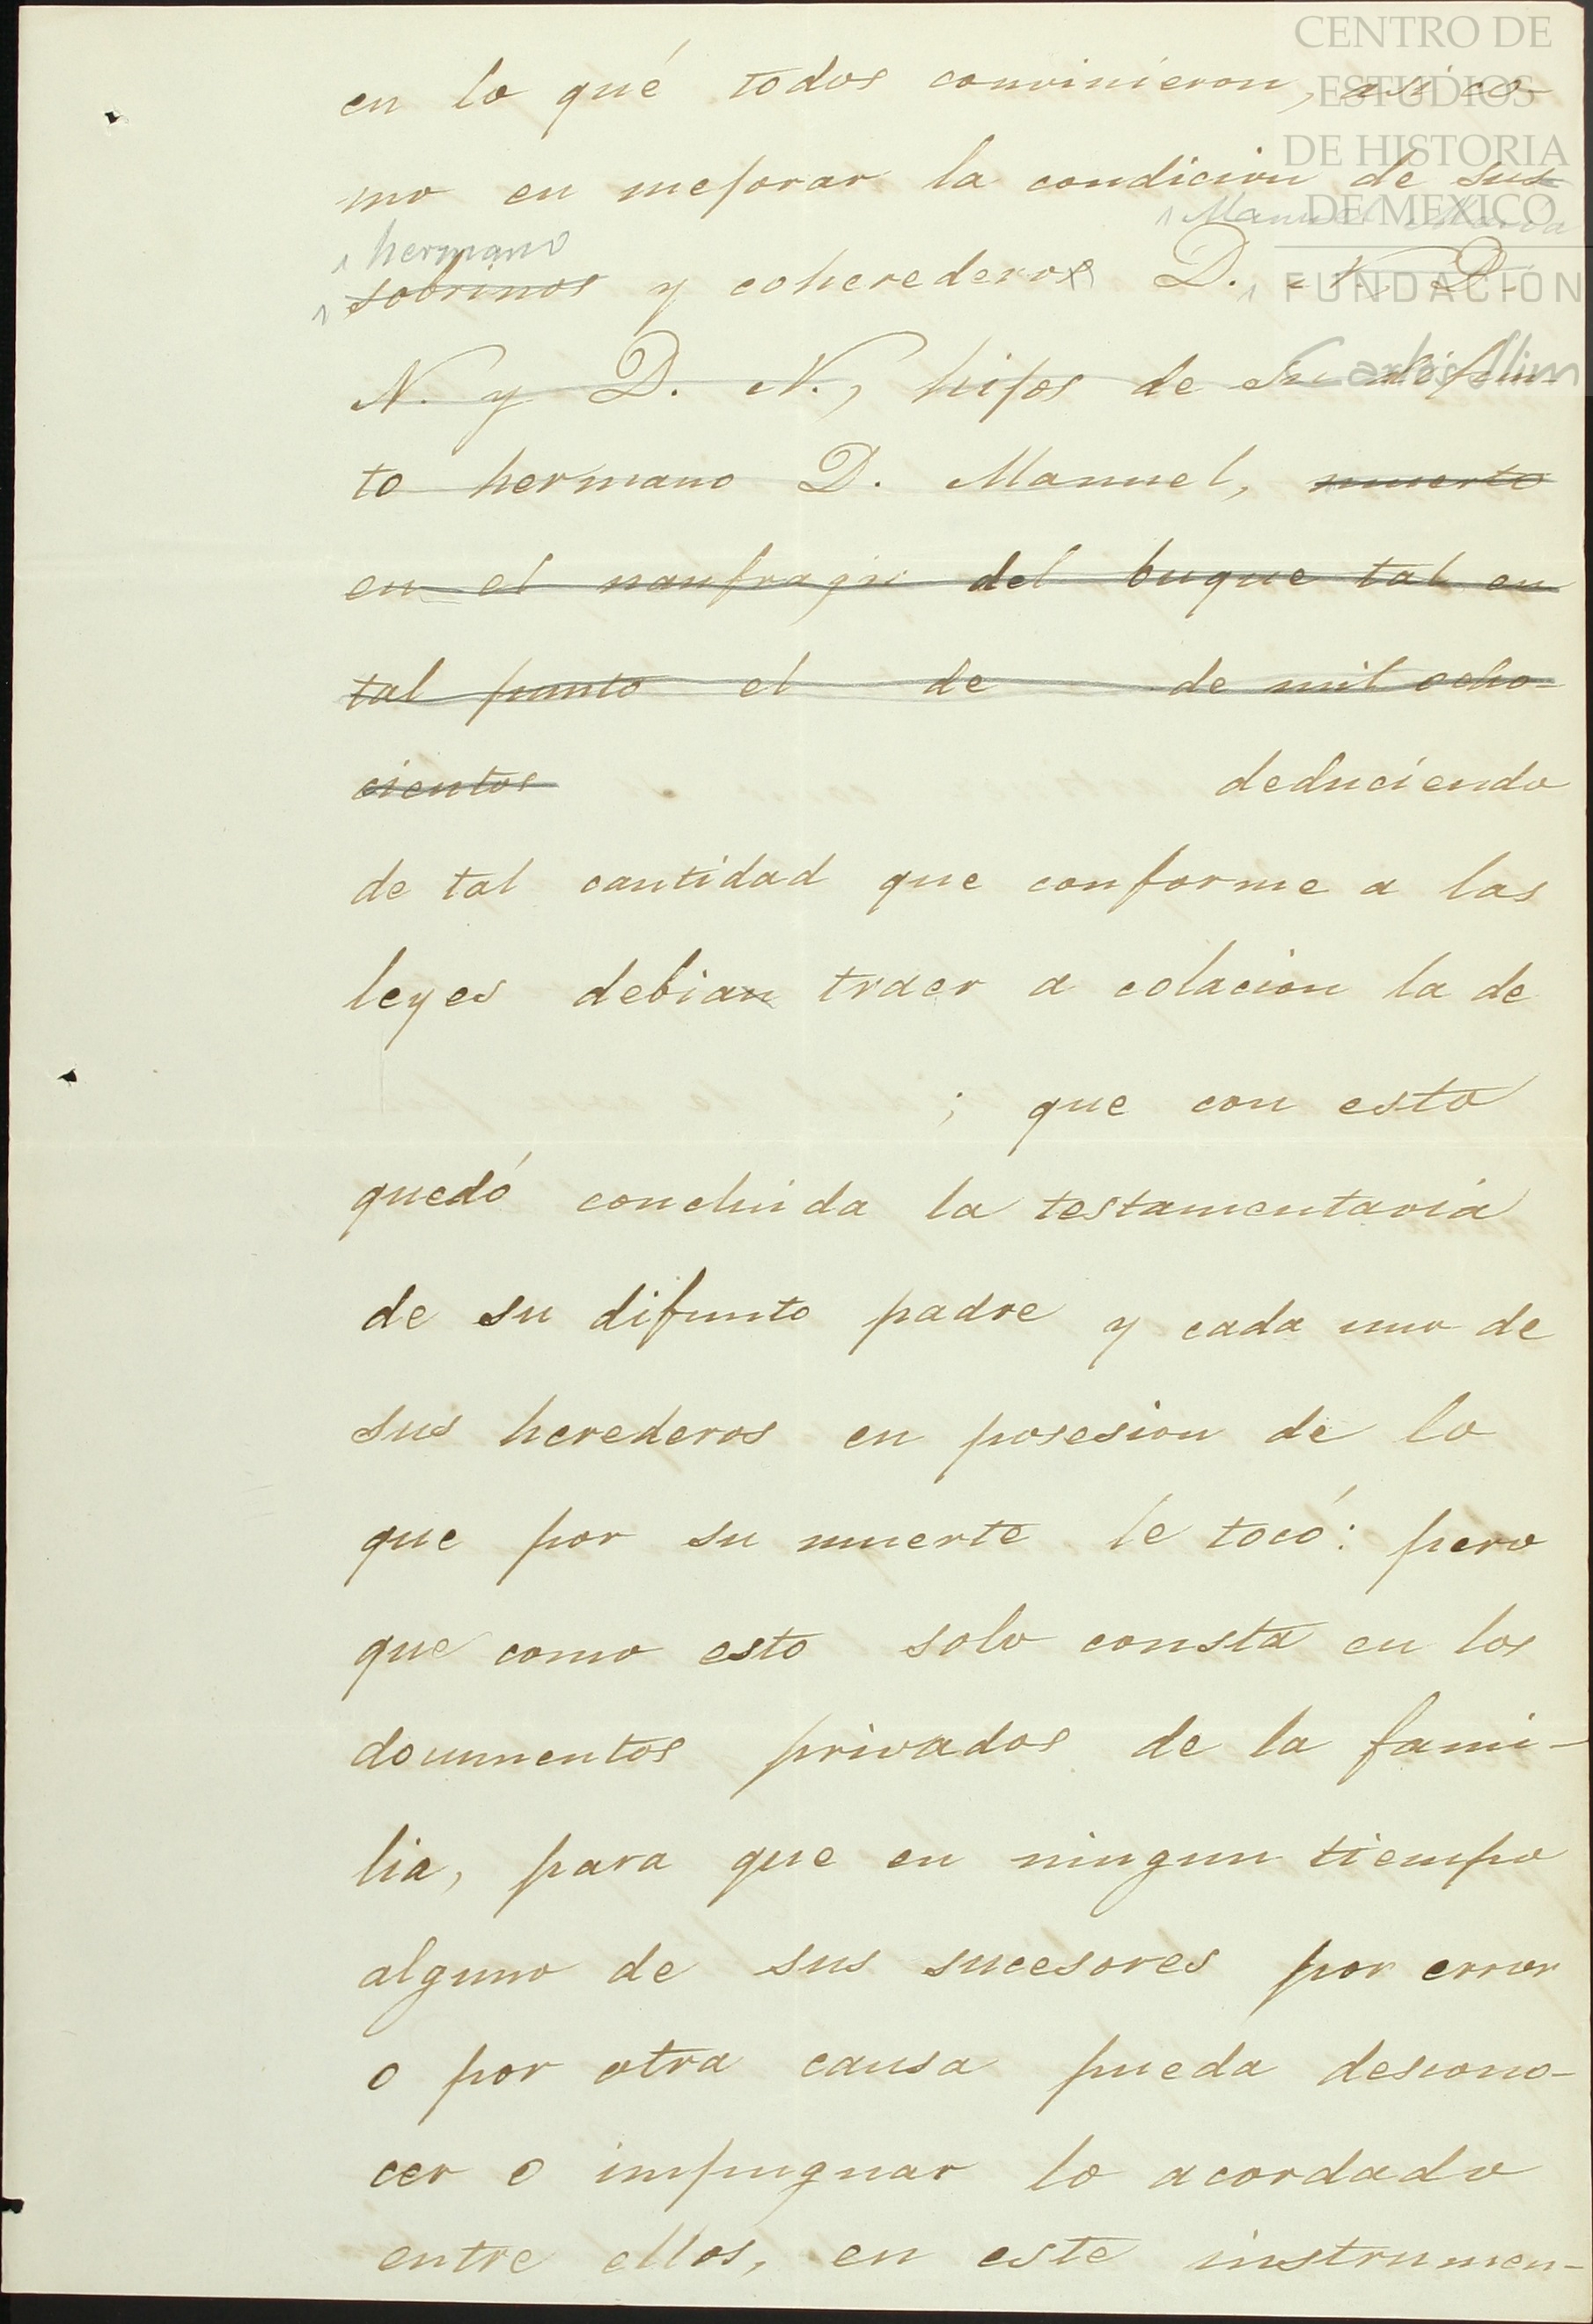 CENTRO DE
ESTUDIOS
DE HISTORIA
DE MEXICO
FUNDACIÓN
Carlos Slim
en lo qué todos convinieron, asi co-
mo en mejorar la condicion de sus
hermano Manuel María
sobrinos y coherederos D. N. D.
N. y D. N., hijos de su difun-
to hermano D. Manuel, muerto
en el naufragio del buque tal en
tal punto el de de mil ocho-
cientos deduciendo
de tal cantidad que conforme a las
leyes debian traer a colacion la de
; que con esto
quedó concluida la testamentaría
de su difunto padre y cada uno de
sus herederos en posesion de lo
que por su muerte le tocó: pero
que como esto solo consta en los
documentos privados de la fami-
lia, para que en ningun tiempo
alguno de sus sucesores por error
o por otra causa pueda descono-
cer o impugnar lo acordado
entre ellos, en este instrumen-